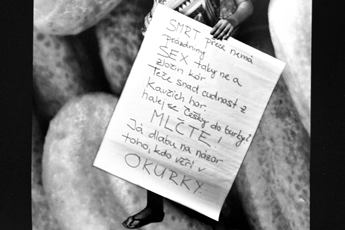 SMRT přece nemá
prázdniny
SEX taky ne a
zločin kór
Teče snad cudnost z
Kavčích hor
halej se Češky do burky?
MLČTE!
Já dlabu na názor
toho, kdo věří v
OKURKY.